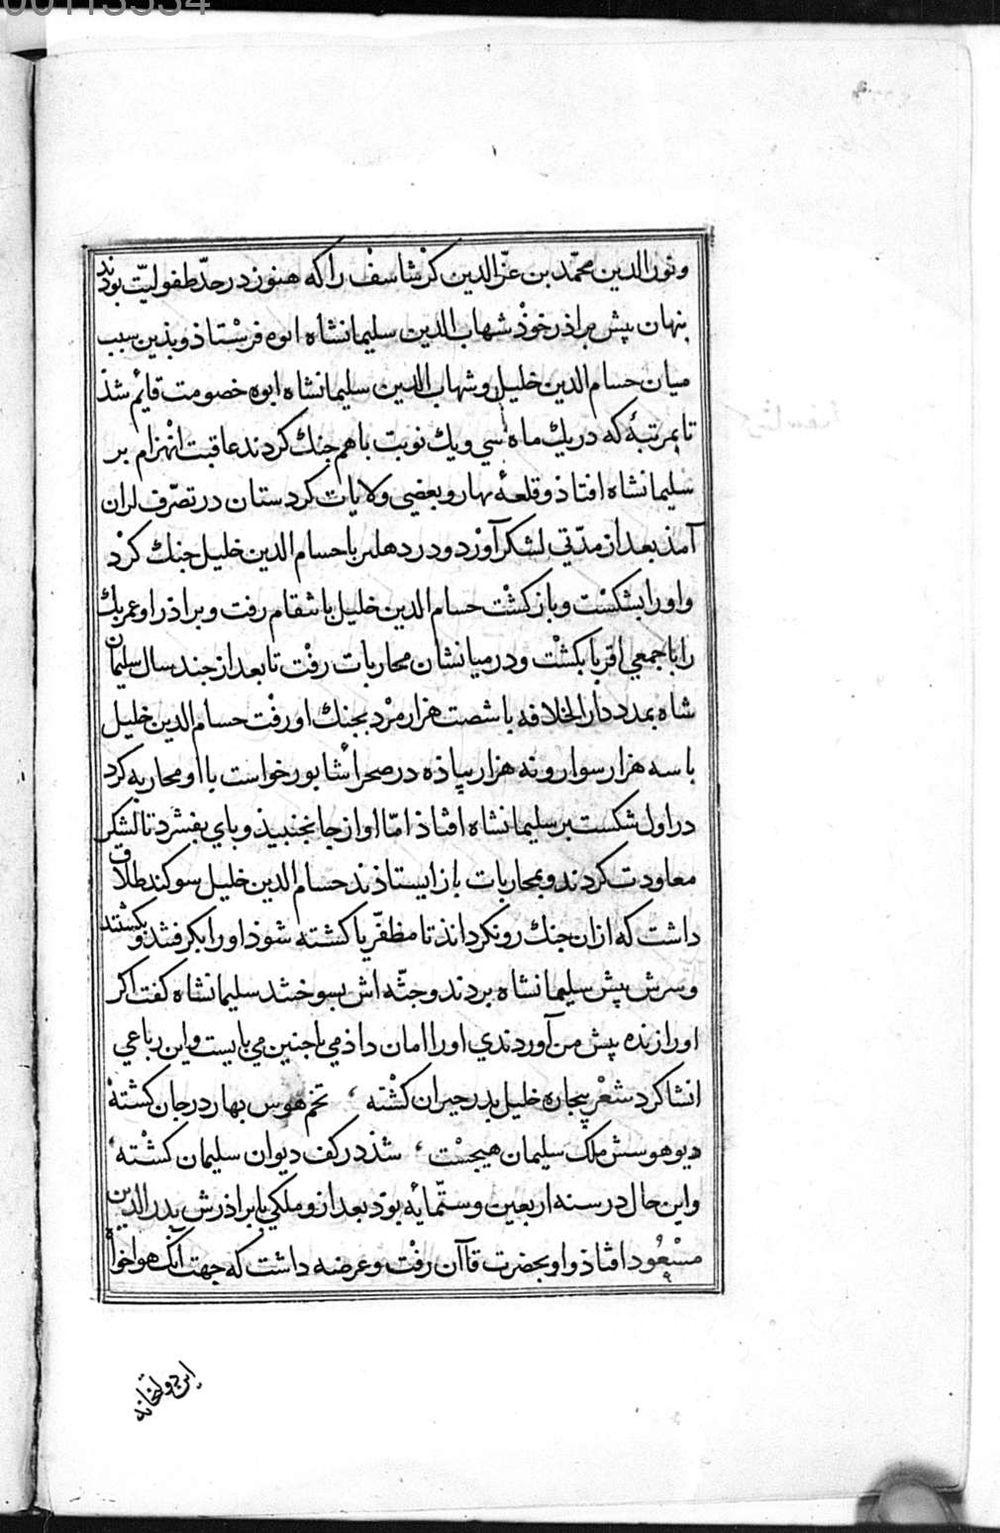 00113534
ونورالدین محمّد بن عزّالدین کرشاسف را که هنوز در حدّ طفولیّت بودند
بنهان پیش براذر خوذ شهاب الدین سلیمانشاه ابوه فرستاذ و بذین سبب
میان حسام الدین خلیل و شهاب الدین سلیمانشاه ابوه خصومت قایٔم شذ
تا بمرتبهٔ که در یك ماه سي و یك نوبت باهم جنك کردند عاقبت انهزام بر
سلیمانشاه افتاذ و قلعهٔ بهار و بعضي ولایات کردستان در تصرّف لران
آمذ بعد از مدّتي لشکر آورد و در دهلر با حسام الدین خلیل جنك کرد
و اورا بشکست و باز کشت حسام الدین خلیل باشقام رفت و براذر او عمر بك
را با جمعي اقربا بکشت و در میانشان محاربات رفت تا بعد از جند سال سلیمان
شاه بمدد دار الخلافه با شصت هزار مرد بجنك او رفت حسام الدین خلیل
با سه هزار سوار و نه هزار پیاذه در صحرا شابور خواست با او محاربه کرد
در اول شکست بر سلیمانشاه افتاذ امّا او از جا نجنبیذ و باي بفشرد تا لشکر
معاودت کردند و بمحاربات باز ایستاذند حسام الدین خلیل سوکند طلاق
داشت که ازان جنك رو نکرداند تا مظفّر یا کشته شوذ اورا بکرفتند و بکشتند
و سرش پیش سلیمانشاه بردند و جثّه اش بسوختند سلیمانشاه کفت اکر
اورا زنده پیش من آوردندي اورا امان داذمي با جنین مي بایست و این رباعي
انشا کرد شعر بیجاره خلیل بدر حیران کشته ، تخم هوس بهار در جان کشته
دیو هوسش ملک سلیمان میجست ، شذ در کف دیوان سلیمان کشته ،
و این حال در سنه اربعین و ستّمایٔه بوذ بعد ازو ملکي با براذرش بدر الدین
مسعود افتاذ و او بحضرت قاآن رفت و عرضه داشت که جهت آنك هواخواه
این دولتخانه